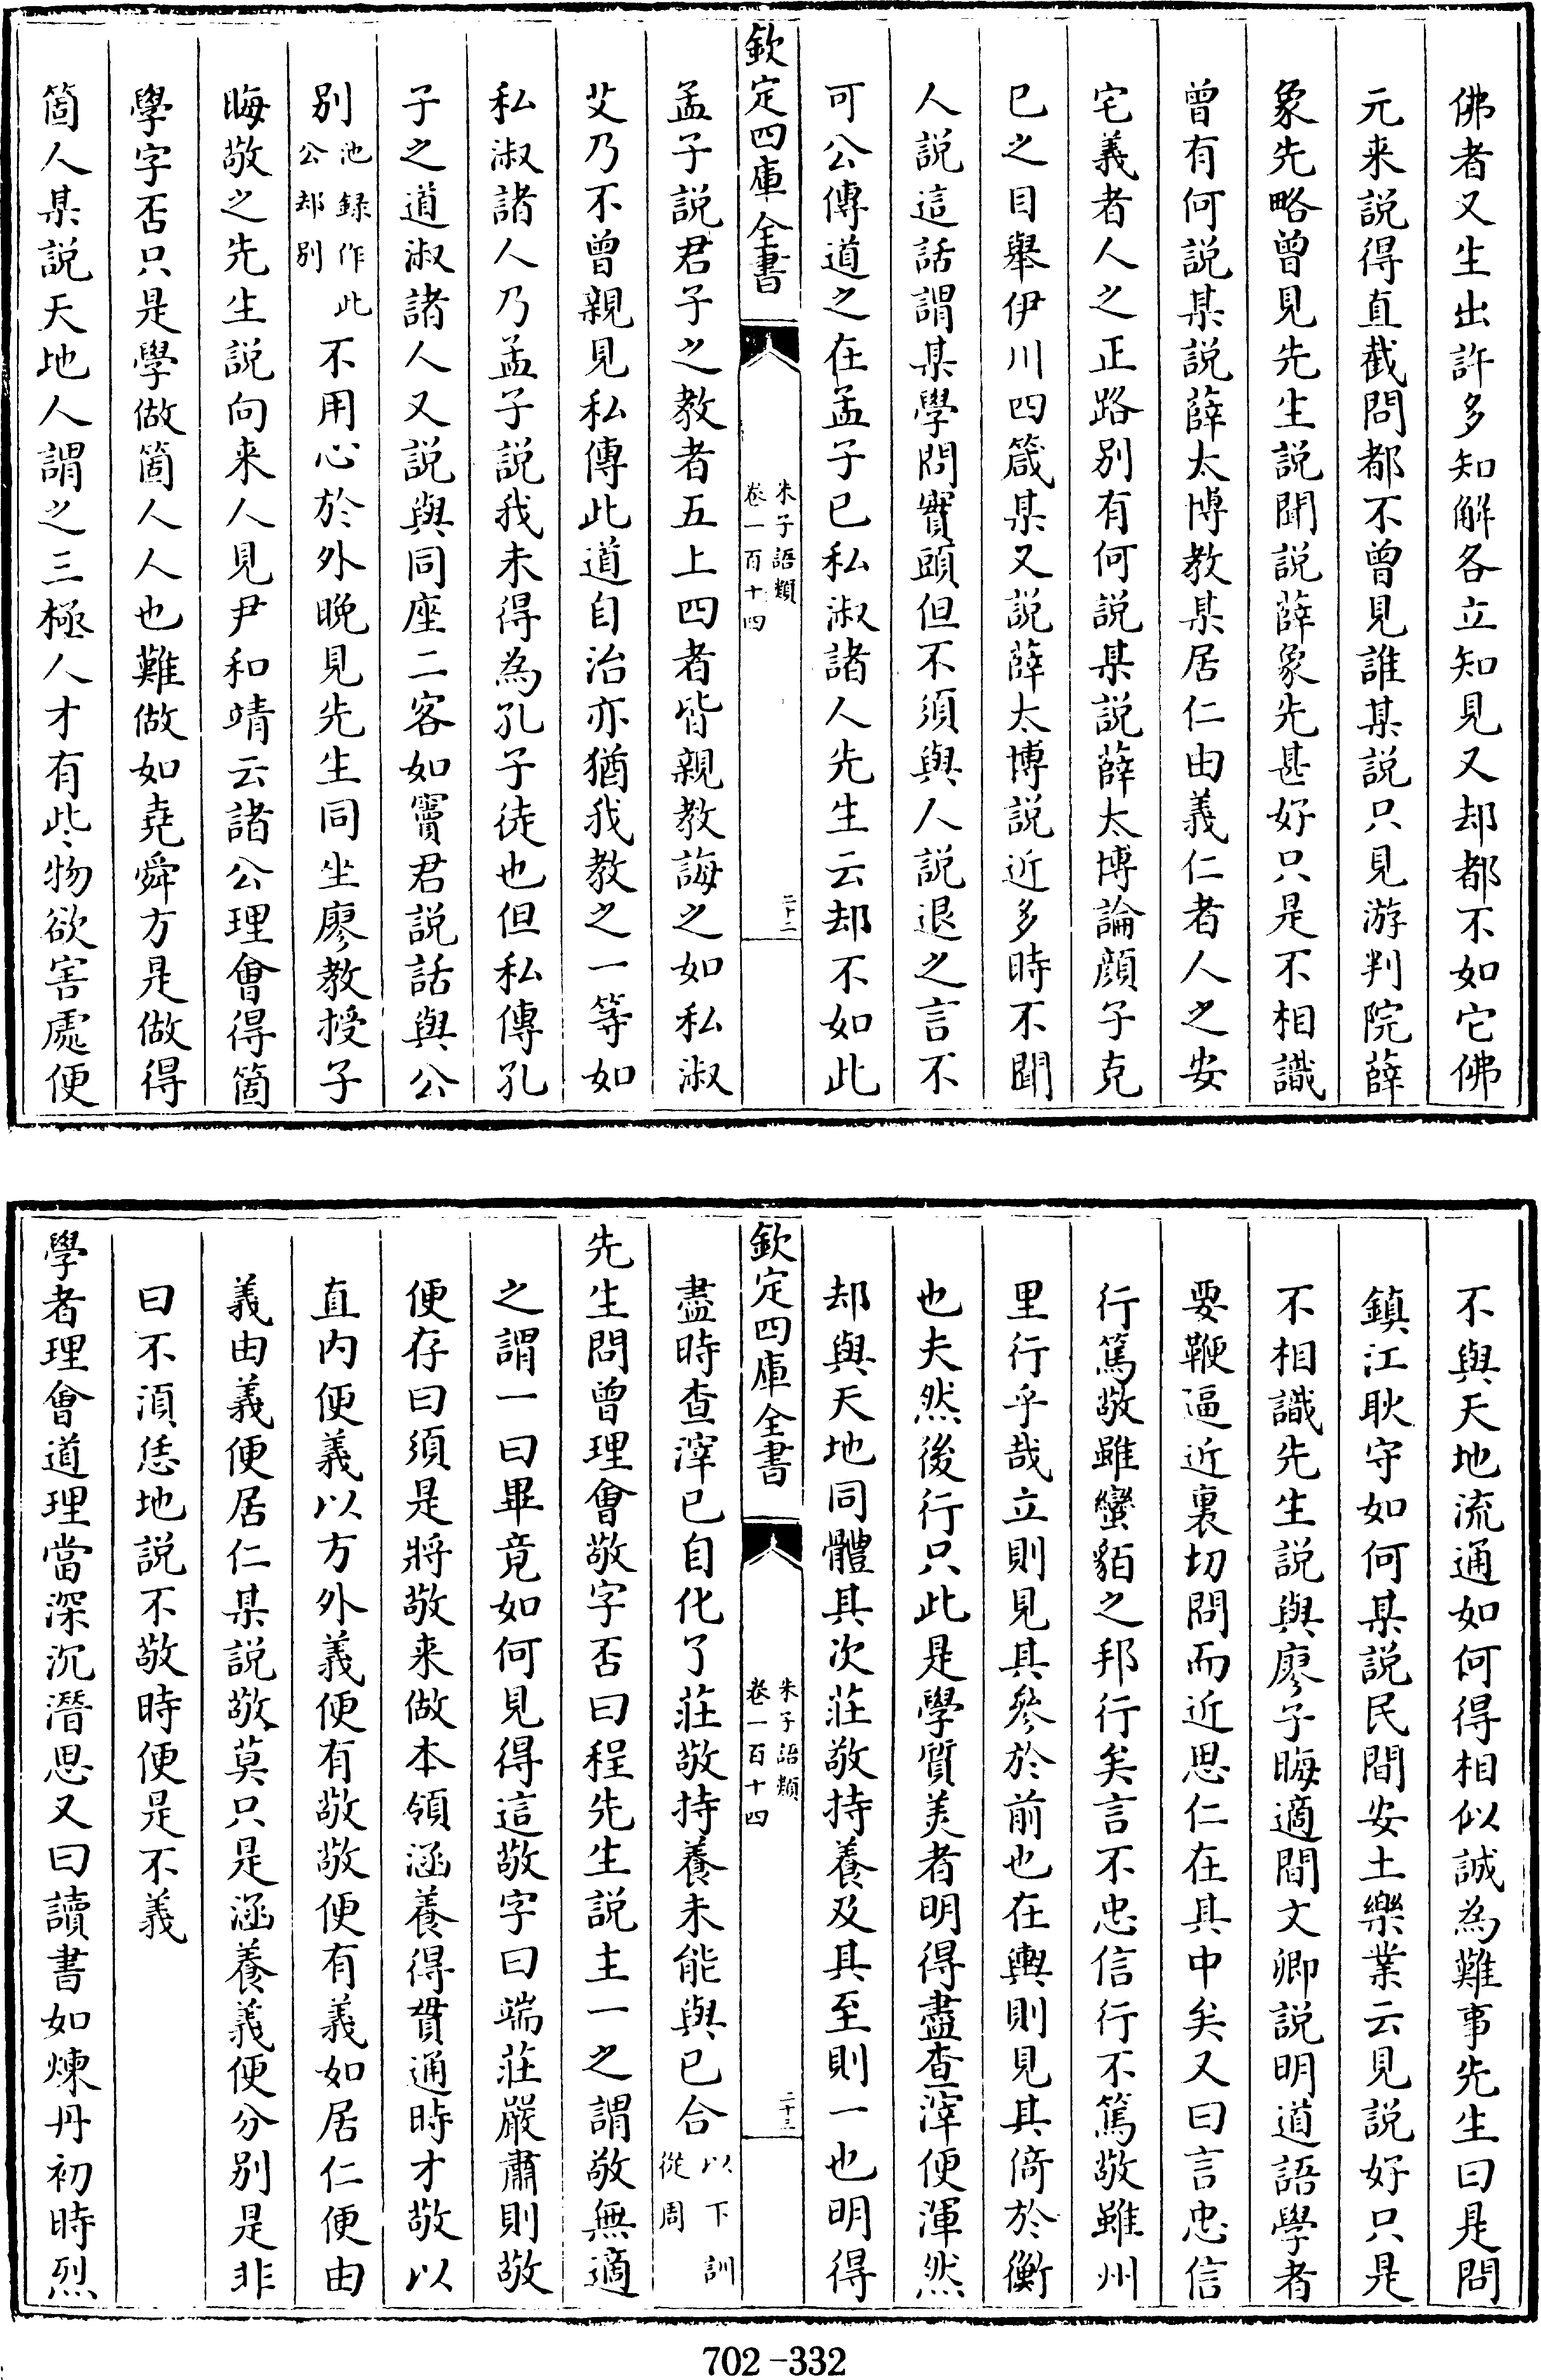 佛者又生出許多知解各立知見又却都不如它佛
元来説得直截問都不曾見誰某説只見游判院薛
象先略曾見先生説聞説薛象先甚好只是不相識
曾有何説某説薛太博教某居仁由義仁者人之安
宅義者人之正路别有何説某説薛太博論顔子克
已之目舉伊川四箴某又説薛太博説近多時不聞
人説這話謂某學問實頭但不須與人説退之言不
可公傳道之在孟子已私淑諸人先生云却不如此
欽定四庫全書
朱子語類
卷一百十四
二十二
孟子説君子之教者五上四者皆親教誨之如私淑
艾乃不曾親見私傳此道自治亦猶我教之一等如
私淑諸人乃孟子説我未得為孔子徒也但私傳孔
子之道淑諸人又説與同座二客如竇君説話與公
别池録作此公却别不用心於外晚見先生同坐廖教授子
晦敬之先生説向来人見尹和靖云諸公理會得箇
學字否只是學做箇人人也難做如堯舜方是做得
箇人某説天地人謂之三極人才有些物欲害處便
不與天地流通如何得相似誠為難事先生曰是問
鎮江耿守如何某説民間安土樂業云見説好只是
不相識先生説與廖子晦適間文卿説明道語學者
要鞭逼近裏切問而近思仁在其中矣又曰言忠信
行篤敬雖蠻貊之邦行矣言不忠信行不篤敬雖州
里行乎哉立則見其參於前也在輿則見其倚於衡
也夫然後行只此是學質美者明得盡查滓便渾然
却與天地同體其次莊敬持養及其至則一也明得
欽定四庫全書
朱子語類
卷一百十四
二十三
盡時查滓已自化了莊敬持養未能與已合以下訓從周
先生問曾理會敬字否曰程先生説主一之謂敬無適
之謂一曰畢竟如何見得這敬字曰端莊嚴肅則敬
便存曰須是將敬来做本領涵養得貫通時才敬以
直内便義以方外義便有敬敬便有義如居仁便由
義由義便居仁某説敬莫只是涵養義便分别是非
曰不湏恁地説不敬時便是不義
學者理會道理當深沉潛思又曰讀書如煉丹初時烈
702-332